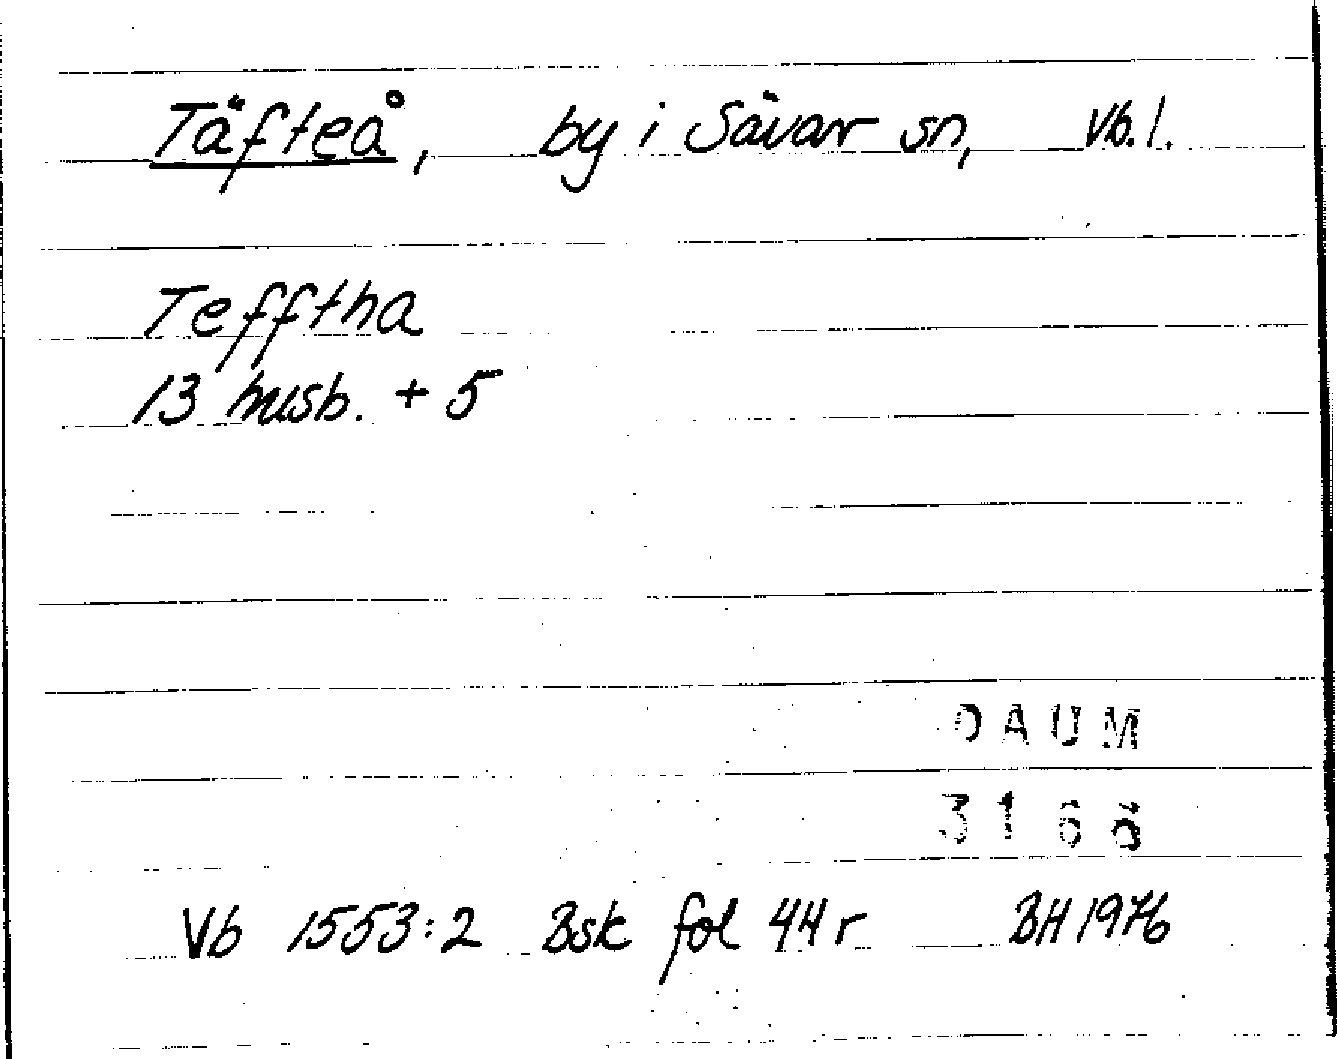 Täfteå, by i Sävar sn, Vb. l.
Tefftha
13 husb. + 5
OAUM
3166
Vb 1553:2 Bsk fol 44 r BH 1976